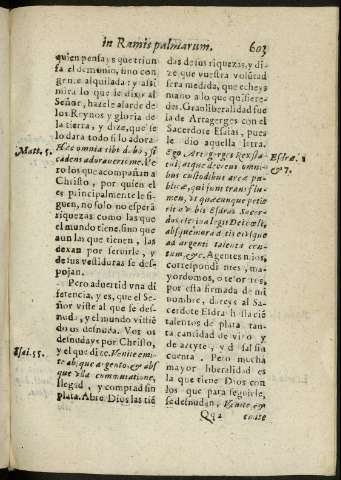 in Ramis palmarum. 603
quien pensays que triun
fa el demonio, sino con
gente alquilada: y assi
mira lo que se dixo al
Señor, hazele alarde de
los Reynos y gloria de
la tierra, y dize, que se
lo dara todo si lo adora
Matt. 5.
Hæc omnia tibi dabo, si
cadens adoraueris me. Ve
ro los que acompañan a
Christo, por quien el
es principalmente le si
guen, no solo no esperã
riquezas como las que
el mundo tiene, sino que
aun las que tienen, las
dexan por seruirle, y
de sus vestiduras se des
pojan.
Pero aduertid vna di
ferencia, y es, que el Se
ñor viste al que se des
nuda, y el mundo vistiẽ
do os desnuda. Vos os
desnudays por Christo,
Isai. 55.
y el que dize. Venite emi
te absque argento, & abs
que vlla commutatione,
llegad, y comprad sin
plata. Abre Dios las tiẽ
das de sus riquezas, y di
ze que vuestra volũtad
sera medida, que echeys
mano a lo que quisiere
des. Gran liberalidad fue
la de Artaxerges con el
Sacerdote Esdras, pues
le dio aquella letra.
Esdræ. 1
& 7.
Ego Artaxerges Rex sta
tui, atque decreui omni
bus custodibus arcæ pu
blicæ, qui sunt trans flu
men, vt quæcunque petie
rit à vobis Esdras Sacer
dos, scriba legis Dei cœli,
absque mora detis vsque
ad argenti talenta cen
tum, &c. Agentes mios,
correspondientes, ma
yordomos, o tesoreros,
por esta firmada de mi
nombre, dareys al Sa
cerdote Esdras hasta ciẽ
talentos de plata tan
ta cantidad de vino y
de azeyte, y de sal sin
cuenta. Pero mucha
mayor liberalidad es
la que tiene Dios con
los que para seguirle,
se desnudan, Venite, &
Qq 2 emite